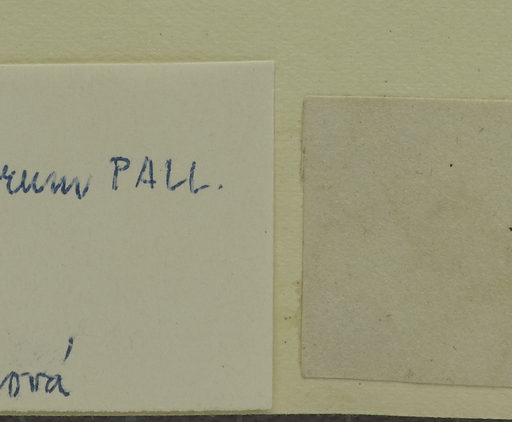 rum PALL.
ová